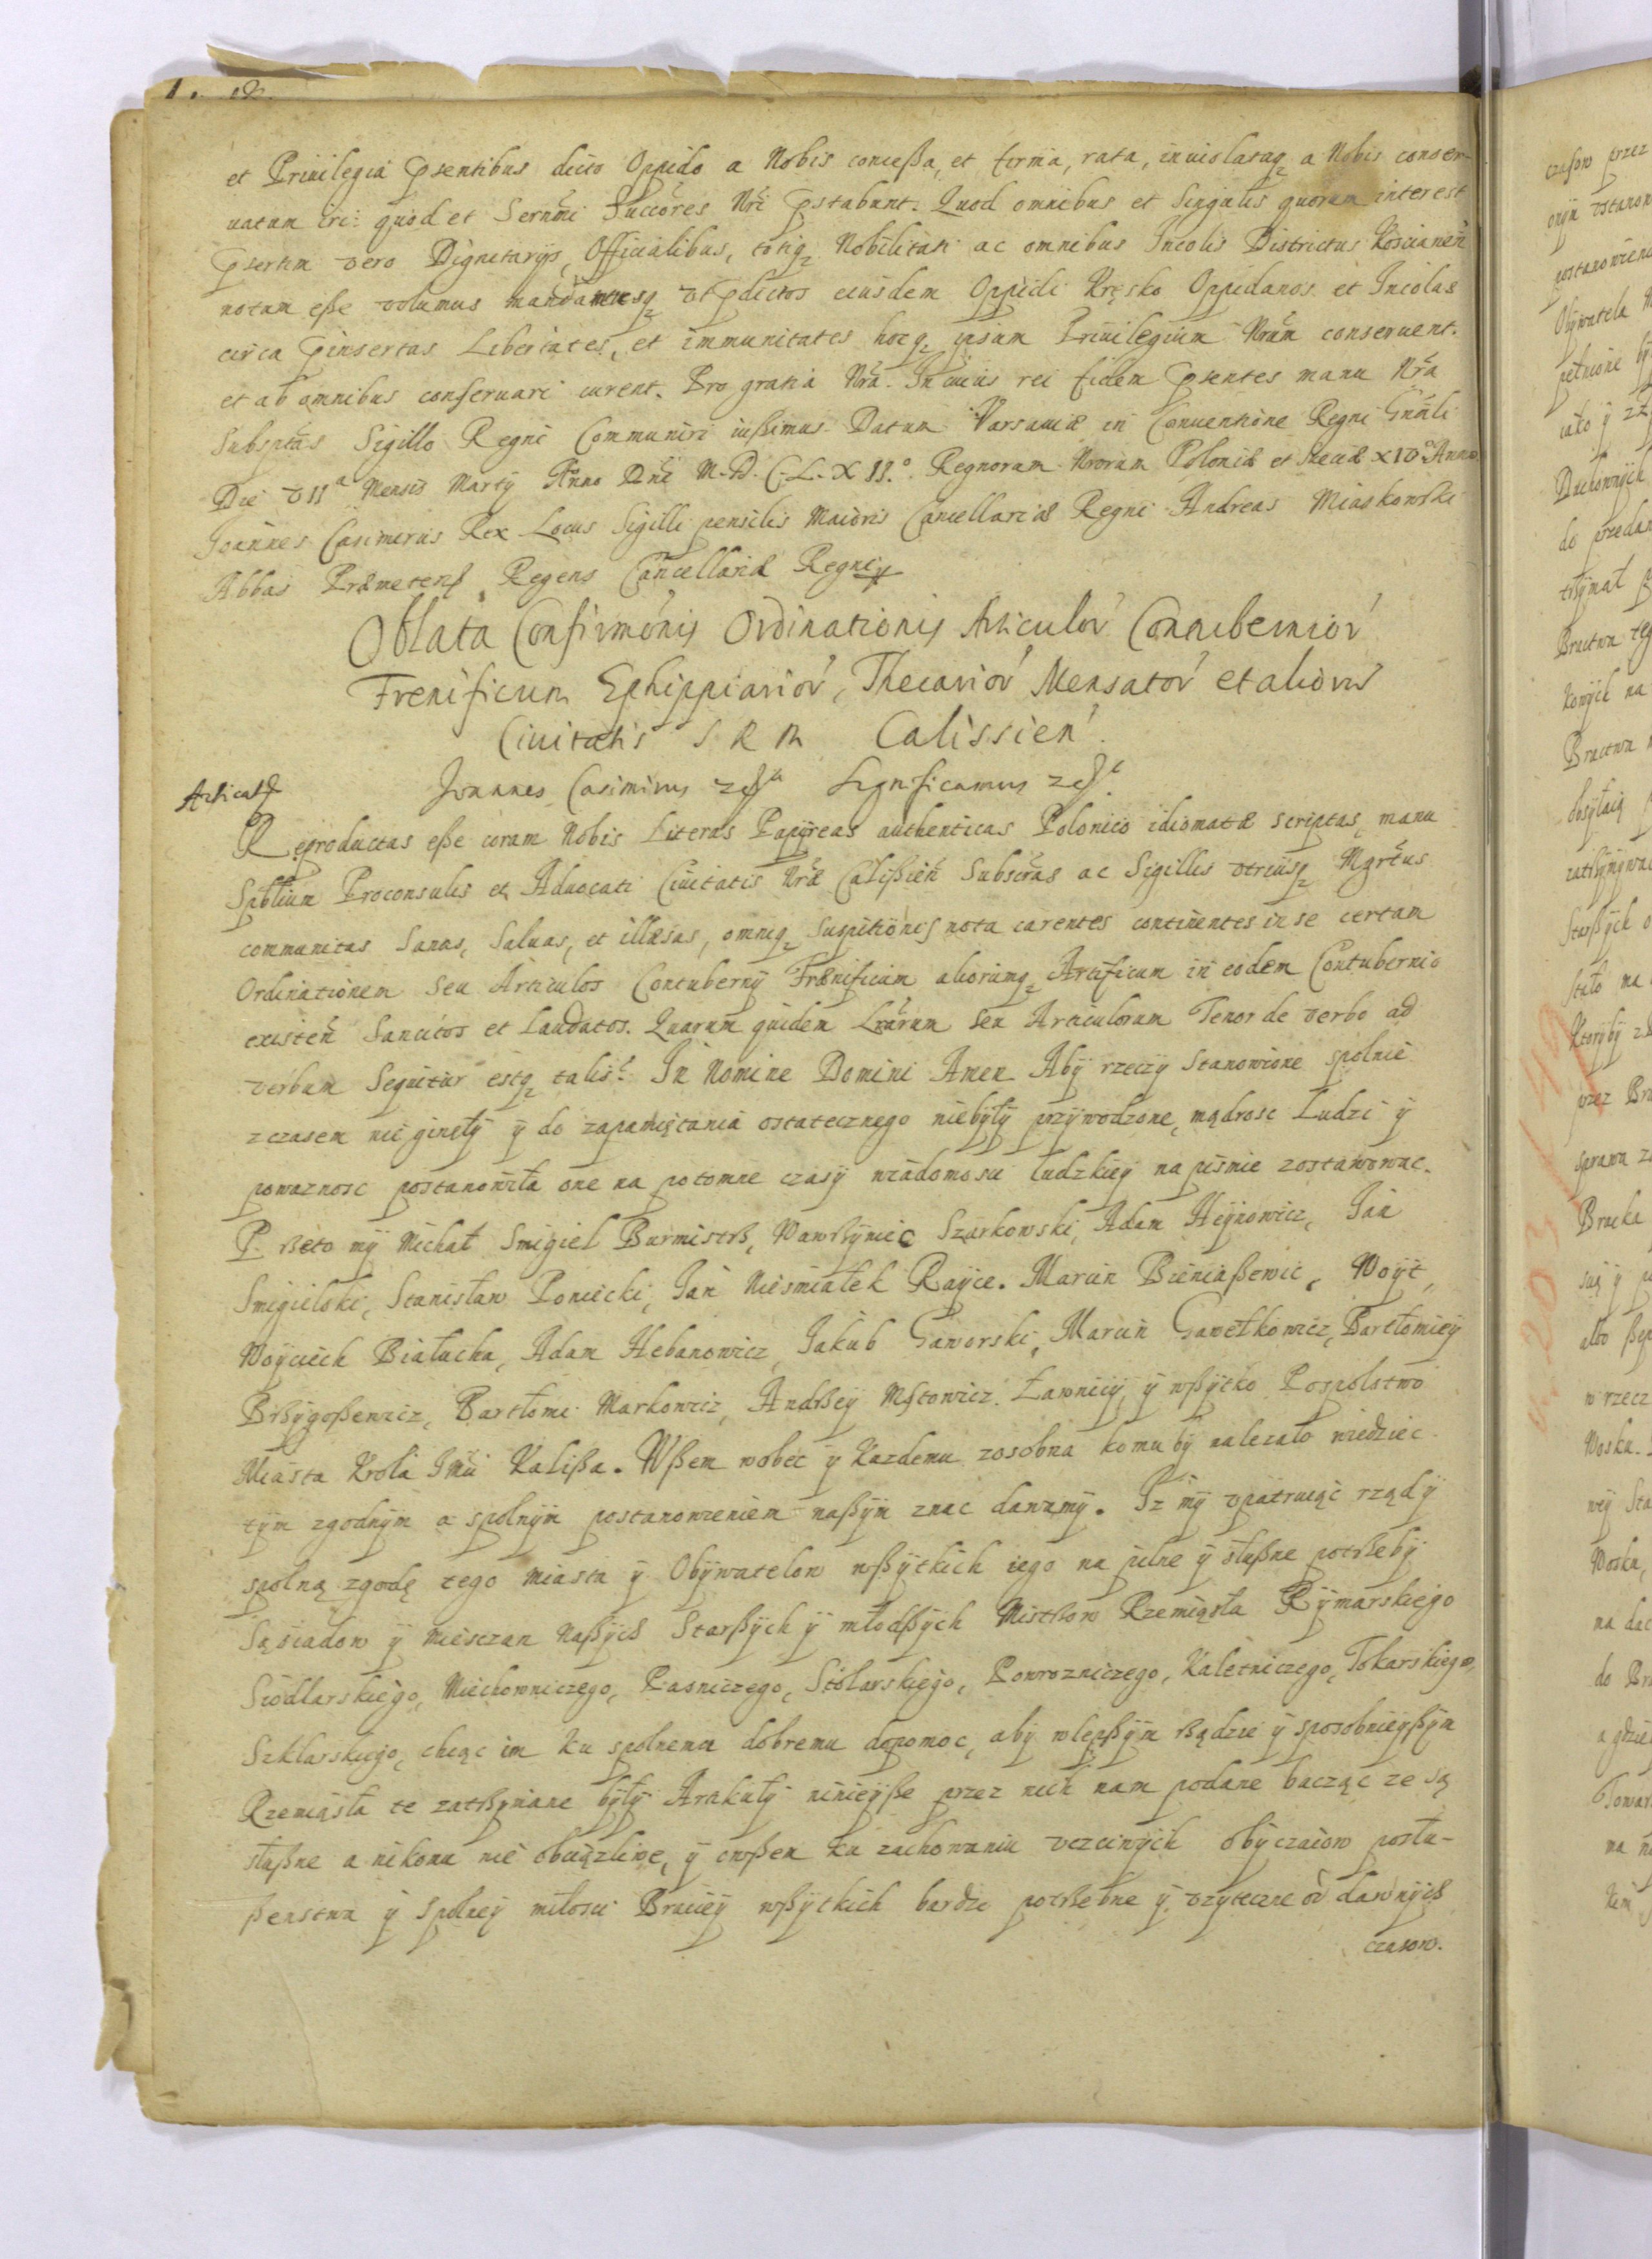 et Priuilegia pſentibus dicto Oppido a Nobis conceßa, et firma, rata, inuiolataq a Nobis conser-
uatum iri: quod et Sernmi Succōres Nri pstabunt. Quod omnibus et Singulis quorum interest
psertim vero Dignitarijs, Officialibus, totiq Nobilitati ac omnibus Incolis Districtus Koscianeñ
notum eße volumus mandamusq vt pdictos eiusdem Oppidi Kręsko Oppidanos et Incolas
circa pinsertas Libertates, et immunitates hocq ipsum Priuilegium Nrum conseruent.
et ab omnibus conſeruari curent. Pro gratia Nra. In cuius rei fidem pſentes manu Nra
Subsptas Sigillo Regni Communiri iußimus. Datum Varsauiæ in Conuentione Regni Gnāli
Die VII a Mensis Martij Anno Dni M.D.C.L.XII.o Regnorum Nrorum Poloniæ et Sueciæ XIV o Anno
Joannes Casimirus Rex Locus Sigilli pensilis Maioris Cancellariæ Regni Andreas Miaskowski
Abbas Præmetenſ, Regens Cancellariæ Regni
Oblata Confirmōnis Ordinationis Articulor Contubernior
Frenificum Ephippiarior, Thecarior Mensator et aliorū
Ciuitatis S R M Calissien.
Articuli
Joannes Casimirus Significamus
Reproductas eße coram Nobis Literas Papyreas authenticas Polonico idiomatæ scriptas, manu
Spblium Proconsulis et Aduocati Ciuitatis Nræ Calißień Subscras ac Sigillis vtriusq Mgrtus
communitas Sanas, Saluas, et illæsas, omniq Suspitionis nota carentes continentes in se certam
Ordinationem seu Articulos Contubernij Frænificum aliorumq Artificum in eodem Contubernio
existeñ Sancitos et Laudatos. Quarum quidem Lrarum seu Articulorum Tenor de verbo ad
verbum Sequitur estq talis. In Nomine Domini Amen Abÿ rzeczÿ Stanowione spolnie
z czasem nie ginęłÿ ÿ do zapamiętania ostatecznego niebyłÿ przÿwodzone, mądrosc Ludzi ÿ
powaznosc postanowiła one na potomne czasÿ wiadomosci ludzkieÿ na piśmie zostawowac.
P. ßeto mÿ Michał Smigiel Burmistrß, Wawrßÿniec Szurkowski, Adam Heÿnowicz, Jan
Smigielski, Stanisław Poniecki, Jan Nieśmiałek Rayce. Marcin Bieniaßewic, Woÿt,
Woÿciech Białucha, Adam Hebanowicz, Jakub Gaworski, Marcin Gawełkowicz, Bartłomieÿ
Brßÿgoßewicz, Bartłomi Markowicz, Andrßeÿ Mątowicz. Ławnicÿ, ÿ wßÿtko Pospolstwo
Miasta Krola JMci Kalißa. Wßem wobec ÿ Kazdemu zosobna komu bÿ nalezało wiedziec
tÿm zgodnÿm a spolnÿm postanowieniem naßÿm znac dawamÿ. Iz mÿ vpatruiąc rządÿ
spolną zgodę tego miasta ÿ Obÿwatelow wßÿtkich iego na pilne ÿ słußne potrßebÿ
Sąsiadow ÿ Miesczan Naßÿch Starßÿch ÿ młodßÿch Mistrßow Rzemiąsła Rÿmarskiego
Siodlarskiego, Miechowniczego, Pasniczego, Stolarskiego, Powrozniczego, Kaletniczego, Tokarskiego,
Szklarskiego, chcąc im ku spolnemu dobremu dopomoc, abÿ wlepßÿm rßądzie ÿ sposobnieÿßÿm
Rzemiąsła te zatrßÿmane bÿłÿ Artikułÿ ninieÿße przez nich nam podane bacząc ze są
słußne a nikomu nie obciązliwe, ÿ owßem ku zachowaniu vczciwÿch obÿczaiow posłu-
ßenstwa ÿ spolneÿ miłosci Braciey wßÿtkich bardzo potrßebne ÿ vzÿteczne od dawnÿch
czasow.